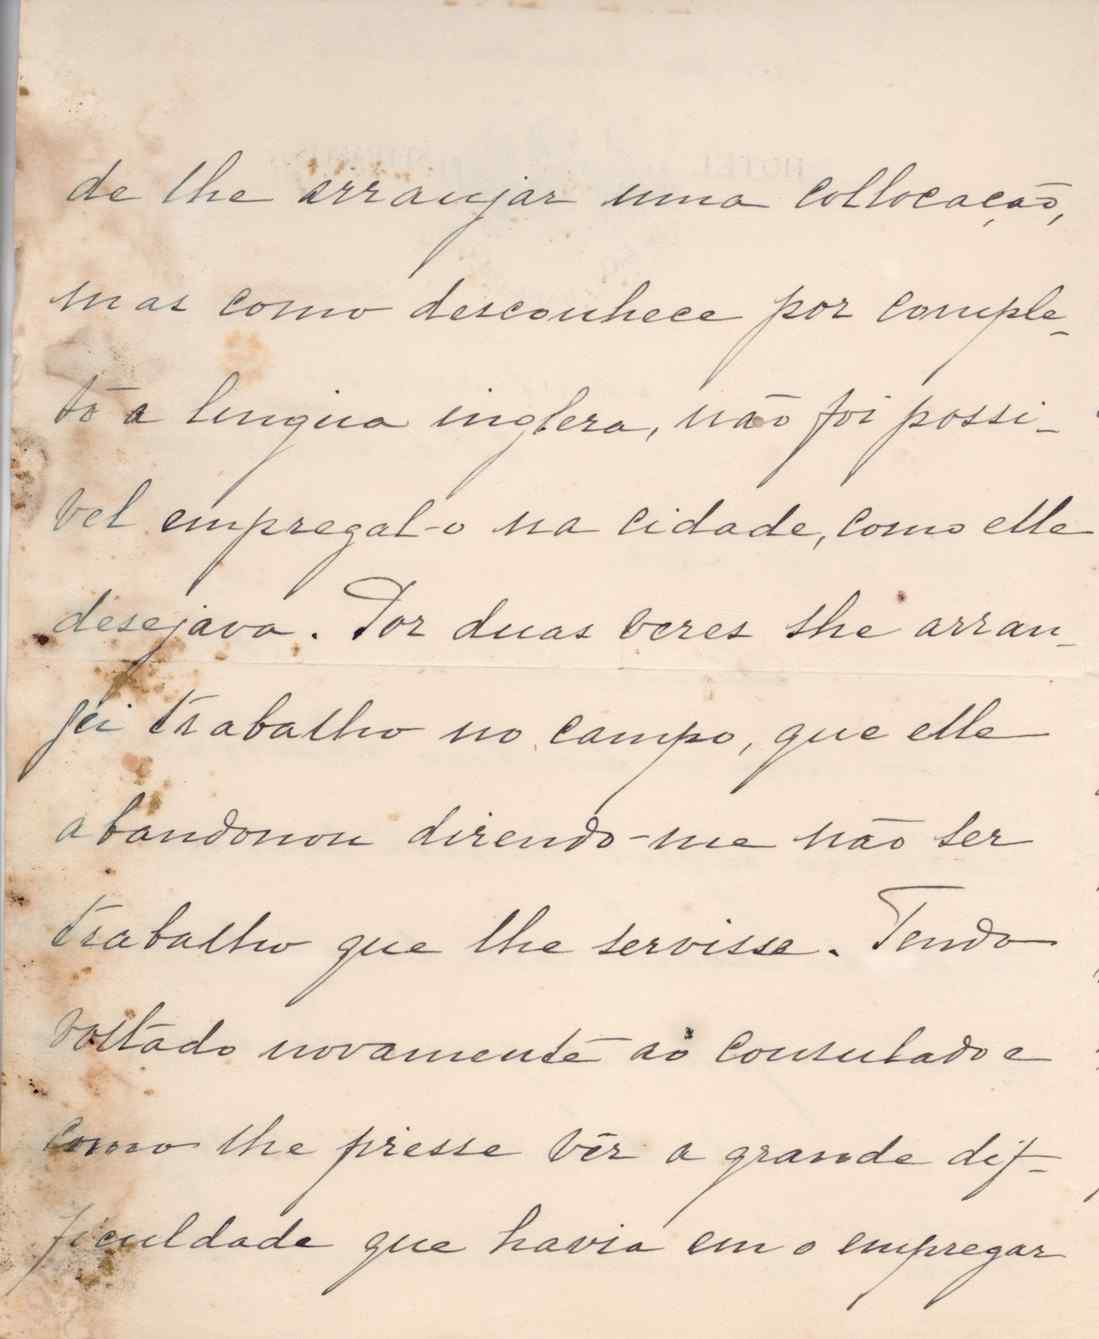 de lhe arranjar uma collocação,
mas como desconhece por comple-
to a lingua ingleza, não foi possi-
vel empregal-o na cidade, como elle
desejava. Por duas vezes lhe arran-
jei trabalho no campo, que elle
abandonou dizendo-me não ser
trabalho que lhe servisse. Tendo
voltado novamente ao consulado e
como lhe fizesse vêr a grande dif-
ficuldade que havia em o empregar